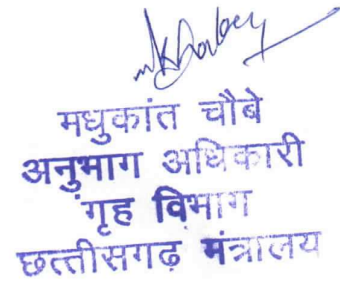 मधुकांत चौबे
अनुभाग अधिकारी
गृह विभाग
छत्तीसगढ़ मंत्रालय